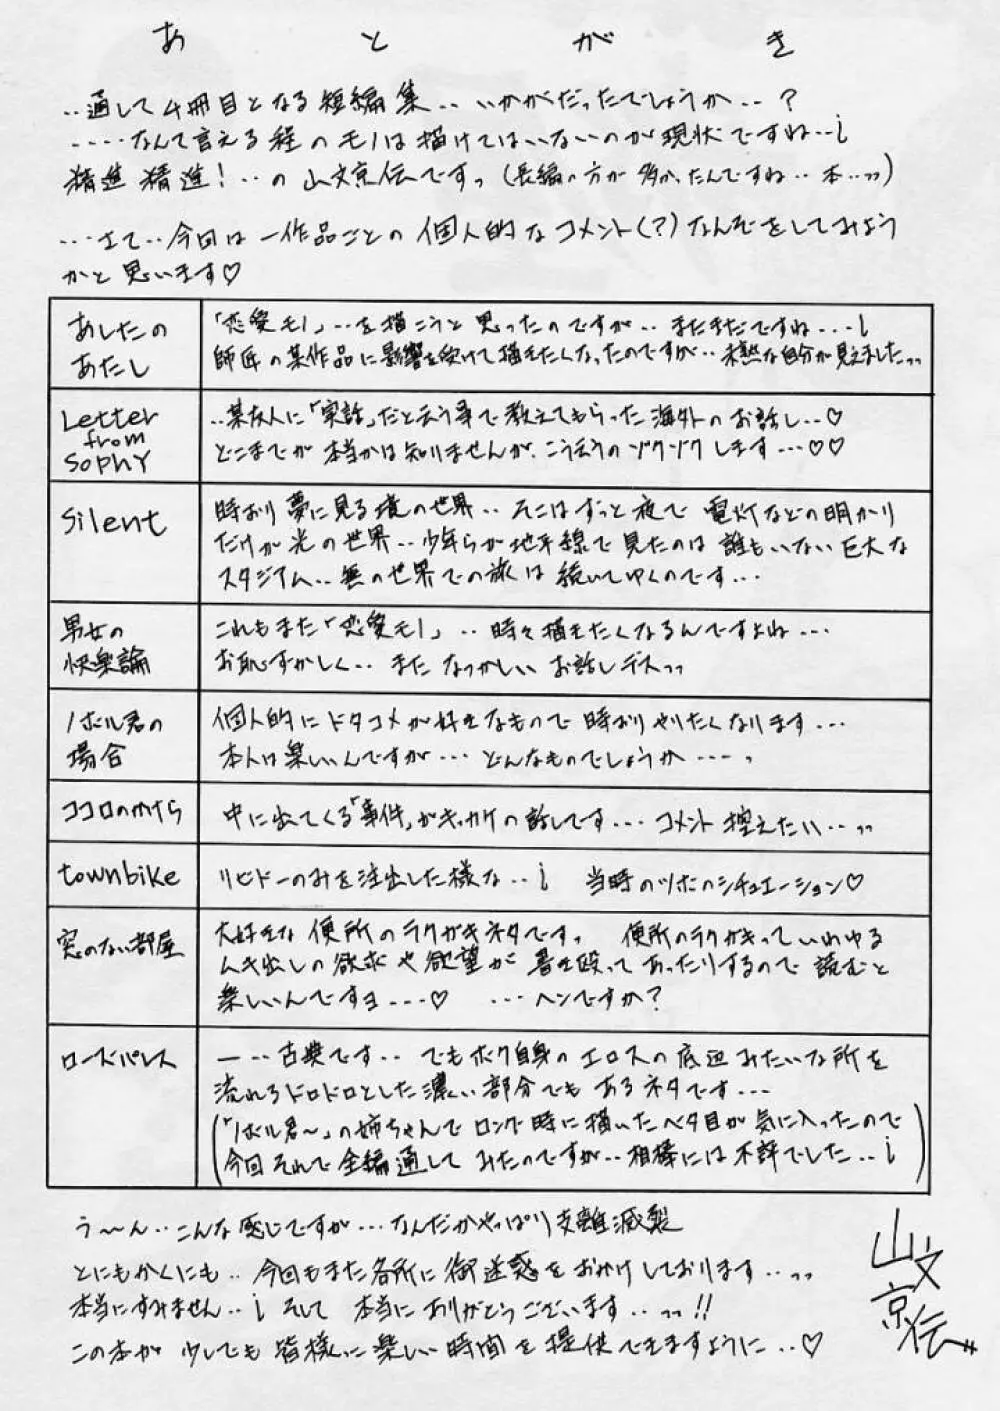 あとがき
‥通して4冊目となる短編集‥いかがだったでしょうか‥?
‥‥なんて言える程のモノは描けてはいないのが現状ですね‥¡
精進 精進!‥の山文京伝ですっ(長編の方が多かったんですね‥本‥ッッ)
‥‥さて‥今回は一作品ごとの個人的なコメント(?)なんぞをしてみよう
かと思います♡
あしたの
あたし
「恋愛モノ」‥を描こうと思ったのですが‥まだまだですね‥‥¡
師匠の某作品に影響を受けて描きたくなったのですが‥未熟な自分が見えましたッッ
Letter
from
Sophy
‥某友人に「実話」だと云う事で教えてもらった海外のお話し‥♡
どこまでが本当かは知りませんが、こう云うのゾクゾクします‥‥♡♡
Silent
時おり夢に見る境の世界‥そこはずっと夜で電灯などの明かり
だけが光の世界‥少年らが地平線で見たのは誰もいない巨大な
スタジアム‥無の世界での旅は続いてゆくのです‥‥
男女の
快楽論
これもまた「恋愛モノ」‥時々描きたくなるんですよね‥‥
お恥ずかしく‥またなつかしいお話しデスッッ
ノボル君の
場合
個人的にドタコメが好きなもので時おりやりたくなります‥‥
本人は楽しいんですが‥‥どんなものでしょうか‥‥っ
ココロのかけら
中に出てくる「事件」がキッカケの話しです‥‥コメント控えたい‥ッッ
townbike
リビドーのみを注出した様な‥¡ 当時のツボのシチュエーション♡
窓のない部屋
大好きな便所のラクガキネタですっ 便所のラクガキっていわゆる
ムキ出しの欲求や欲望が書き殴ってあったりするので読むと
楽しいんですヨ‥‥♡ ‥‥ヘンですか?
ローズパレス
‥‥古典です‥でもボク自身のエロスの底辺みたいな所を
流れるドロドロとした濃い部分でもあるネタです‥‥
(「ノボル君～」の姉ちゃんでロング時に描いたベタ目が気に入ったので
今回それで全編通してみたのですが‥相棒には不評でした‥¡)
う～ん‥こんな感じですが‥‥なんだかやっぱり支離滅裂
とにもかくにも‥今回もまた各所に御迷惑をおかけしております‥ッッ
本当にすみません‥¡ そして本当にありがとうございます‥ッッ!!
この本が少しでも皆様に楽しい時間を提供できますように‥♡
山文
京伝